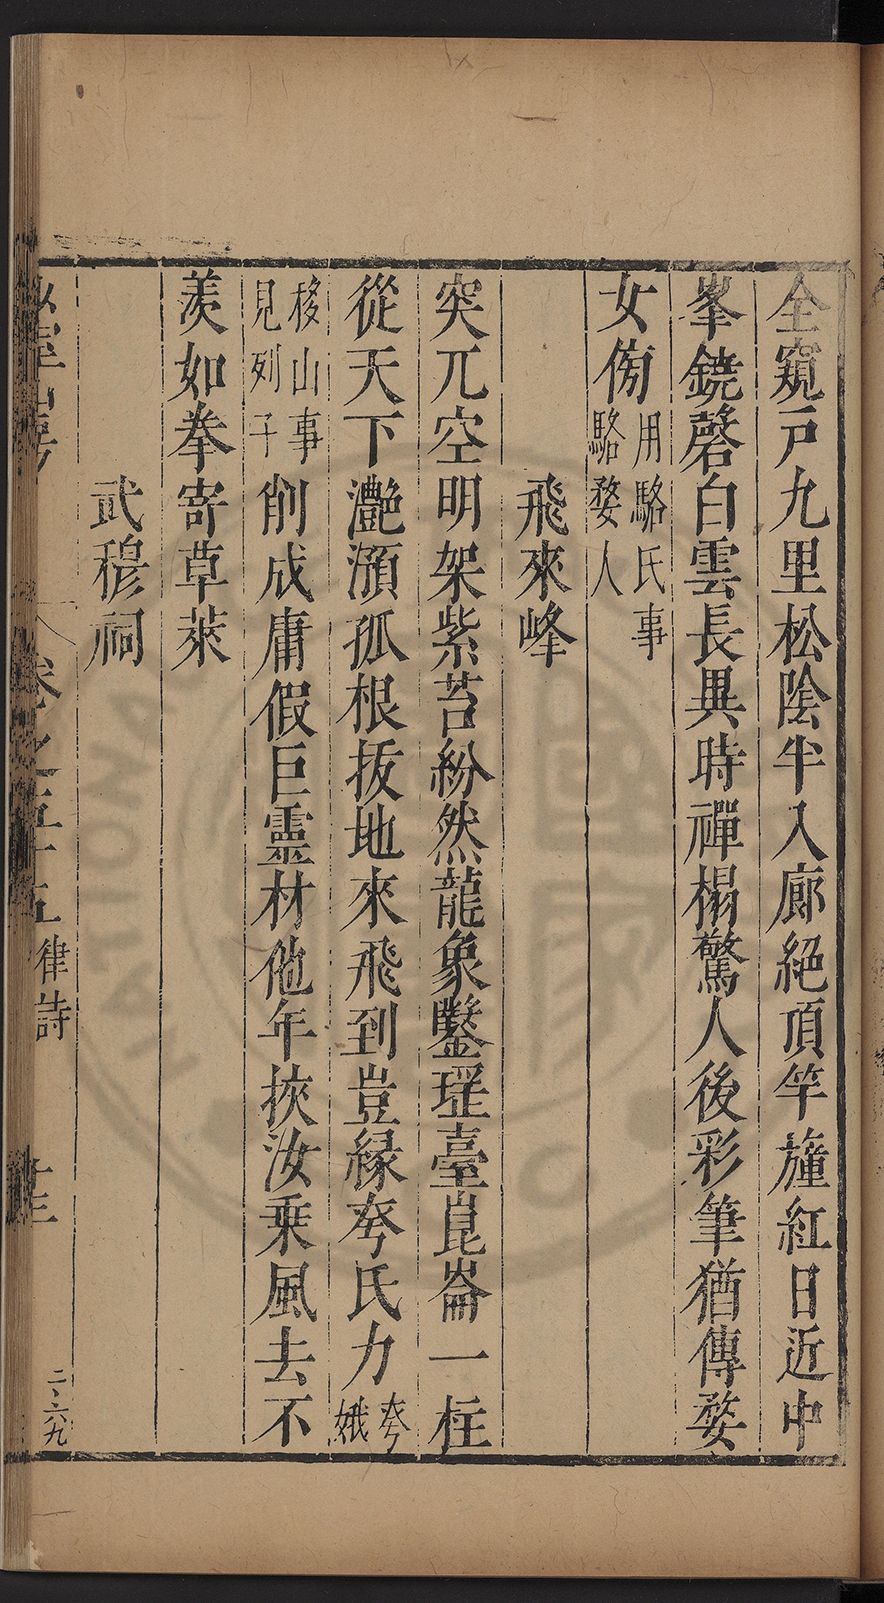 全窺戸九里松陰半入廊絕頂竿旛紅日近中
峯鐃磬白雲長異時禪榻驚人後彩筆猶傳婺
女傍用駱氏事駱婺人
飛來峰
突兀空明架紫苔紛然龍象鑿瑤臺崑崙一柱
從天下灧澦孤根拔地來飛到豈緣夸氏力夸娥
移山事見列子削成庸假巨靈材他年挾汝乘風去不
羨如拳寄草萊
武穆祠
卷之五十五 律詩 十三
二、六九